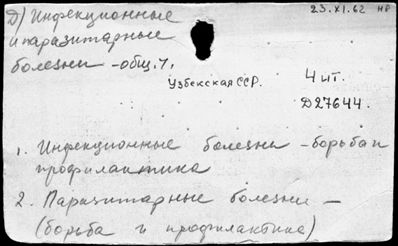 Д) Инфекционные
23.XI.62 НР
и паразитарные
болезни – общ. ч.
Узбекская ССР.
4 шт.
D27644.
1. Инфекционные болезни – борьба и
профилактика
2. Паразитарные болезни –
(борьба и профилактика)